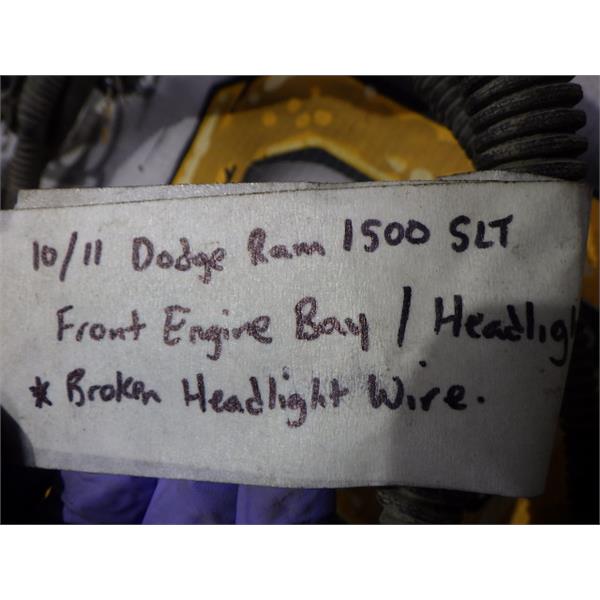 10/11 Dodge Ram 1500 SLT
Front Engine Bay / Headlig
* Broken Headlight Wire.